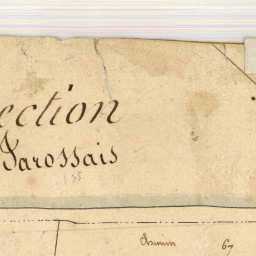 ection
Parossais
Chemin 67